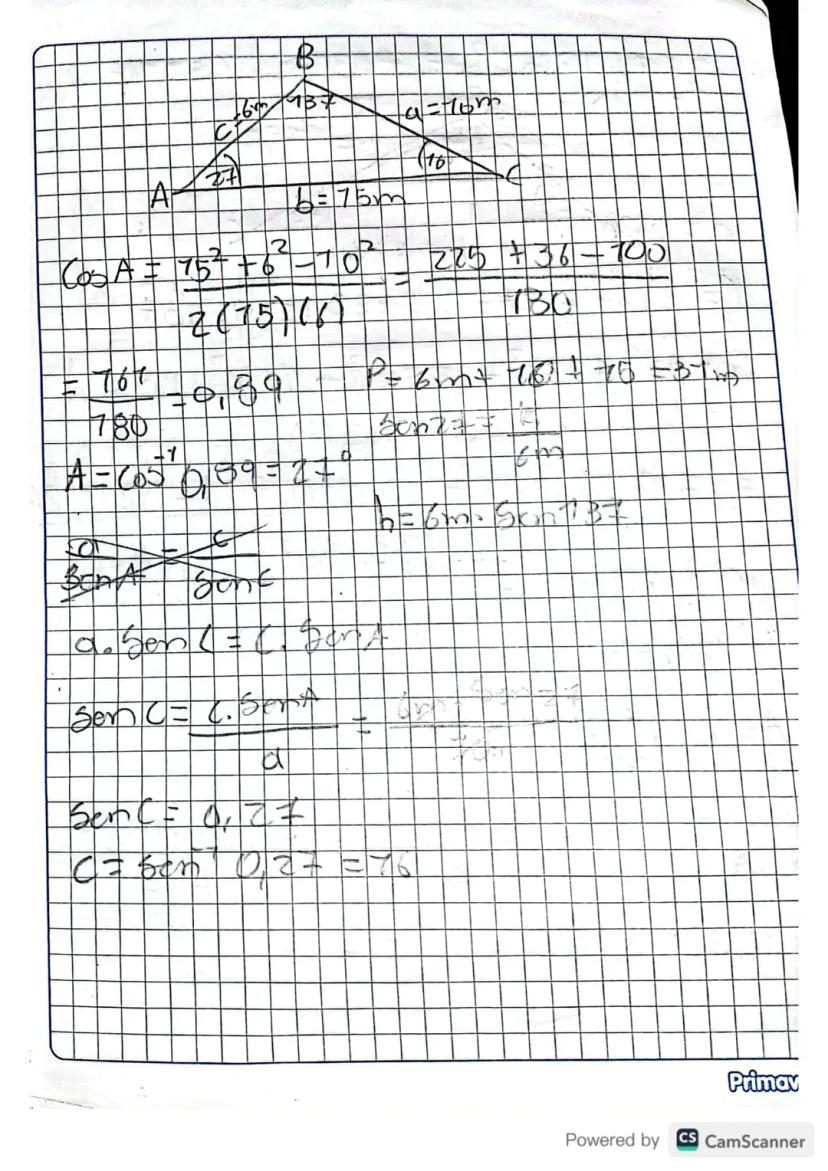 B
137
c=6m
a=10m
27
16
A
C
b=15m
Cos A = 15² + 6² - 10² / 2(15)(6) = 225 + 36 - 100 / 180
= 161 / 180 = 0,89
P= 6m+ 10 + 15 = 31m
A = Cos⁻¹ 0,89 = 27°
Sen27 = h / 6m
h = 6m · Sen 137
a / Sen A = c / Sen C
a. Sen C = C. Sen A
Sen C = C. Sen A / a = 6m · Sen 27
Sen C = 0,27
C = Sen⁻¹ 0,27 = 16
Primav
Powered by CS CamScanner